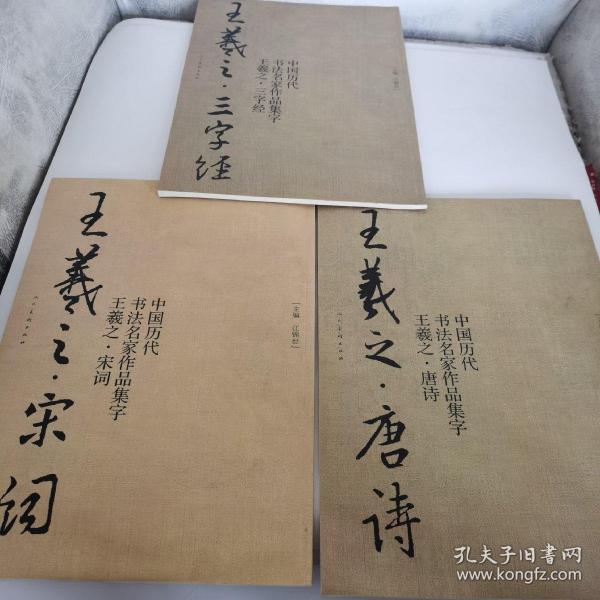 王羲之·三字经
中国历代
书法名家作品集字
王羲之·三字经
王羲之·宋词
中国历代
书法名家作品集字
王羲之·宋词
[主编 江锦世]
人民美术出版社
王羲之·唐诗
中国历代
书法名家作品集字
王羲之·唐诗
人民美术出版社
孔夫子旧书网
www.kongfz.com